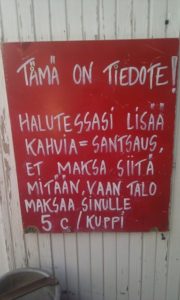 TÄMÄ ON TIEDOTE!
HALUTESSASI LISÄÄ
KAHVIA = SANTSAUS,
ET MAKSA SIITÄ
MITÄÄN, VAAN TALO
MAKSAA SINULLE
5 c / KUPPI